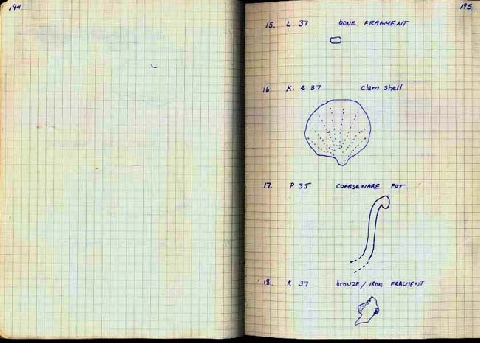 194
195
15. L 37 BONE FRAGMENT
16 K. & 37 Clam Shell
17. P 35 COARSEWARE POT
18. K 37 bronze / iron FRAGMENT